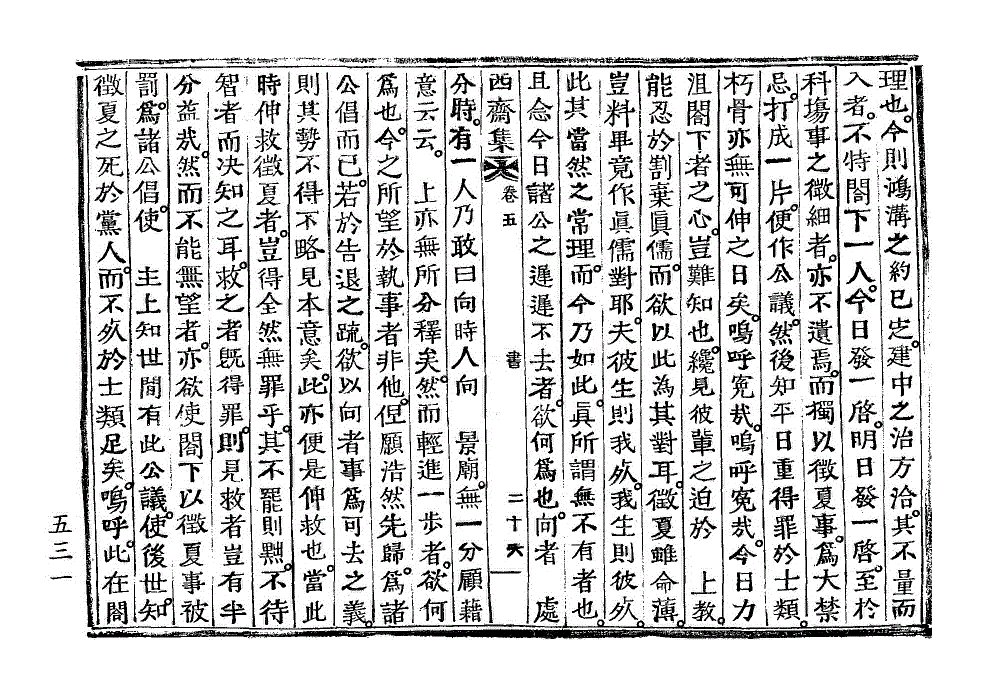 理也。今則鴻溝之約已㝎。建中之治方洽。其不量而
入者。不特閤下一人。今日發一啓。明日發一啓。至於
科塲事之微細者。亦不遺焉。而獨以徵夏事。爲大禁
忌。打成一片。便作公議。然後知平日重得罪於士類。
朽骨亦無可伸之日矣。嗚呼寃㢤。嗚呼寃㢤。今日力
沮閤下者之心。豈難知也。纔見彼輩之迫於　上敎。
能忍於割棄眞儒。而欲以此為其對耳。徵夏雖命薄。
豈料畢竟作眞儒對耶。夫彼生則我死。我生則彼死。
此其當然之常理。而今乃如此。眞所謂無不有者也。
且念今日諸公之遲遲不去者。欲何爲也。向者　處
西齋集　卷五　書　二十六
分時。有一人乃敢曰向時人向　景廟。無一分顧藉
意云云。　上亦無所分釋矣。然而輕進一步者。欲何
爲也。今之所望於執事者非他。但願浩然先歸。爲諸
公倡而已。若於告退之疏。欲以向者事爲可去之義。
則其勢不得不略見本意矣。此亦便是伸救也。當此
時伸救徵夏者。豈得全然無罪乎。其不罷則黜。不待
智者而决知之耳。救之者旣得罪。則見救者豈有半
分益㢤。然而不能無望者。亦欲使閤下以徵夏事被
罰。爲諸公倡。使　主上知世間有此公議。使後世知
徵夏之死於黨人。而不死於士類足矣。嗚呼。此在閤
五三一